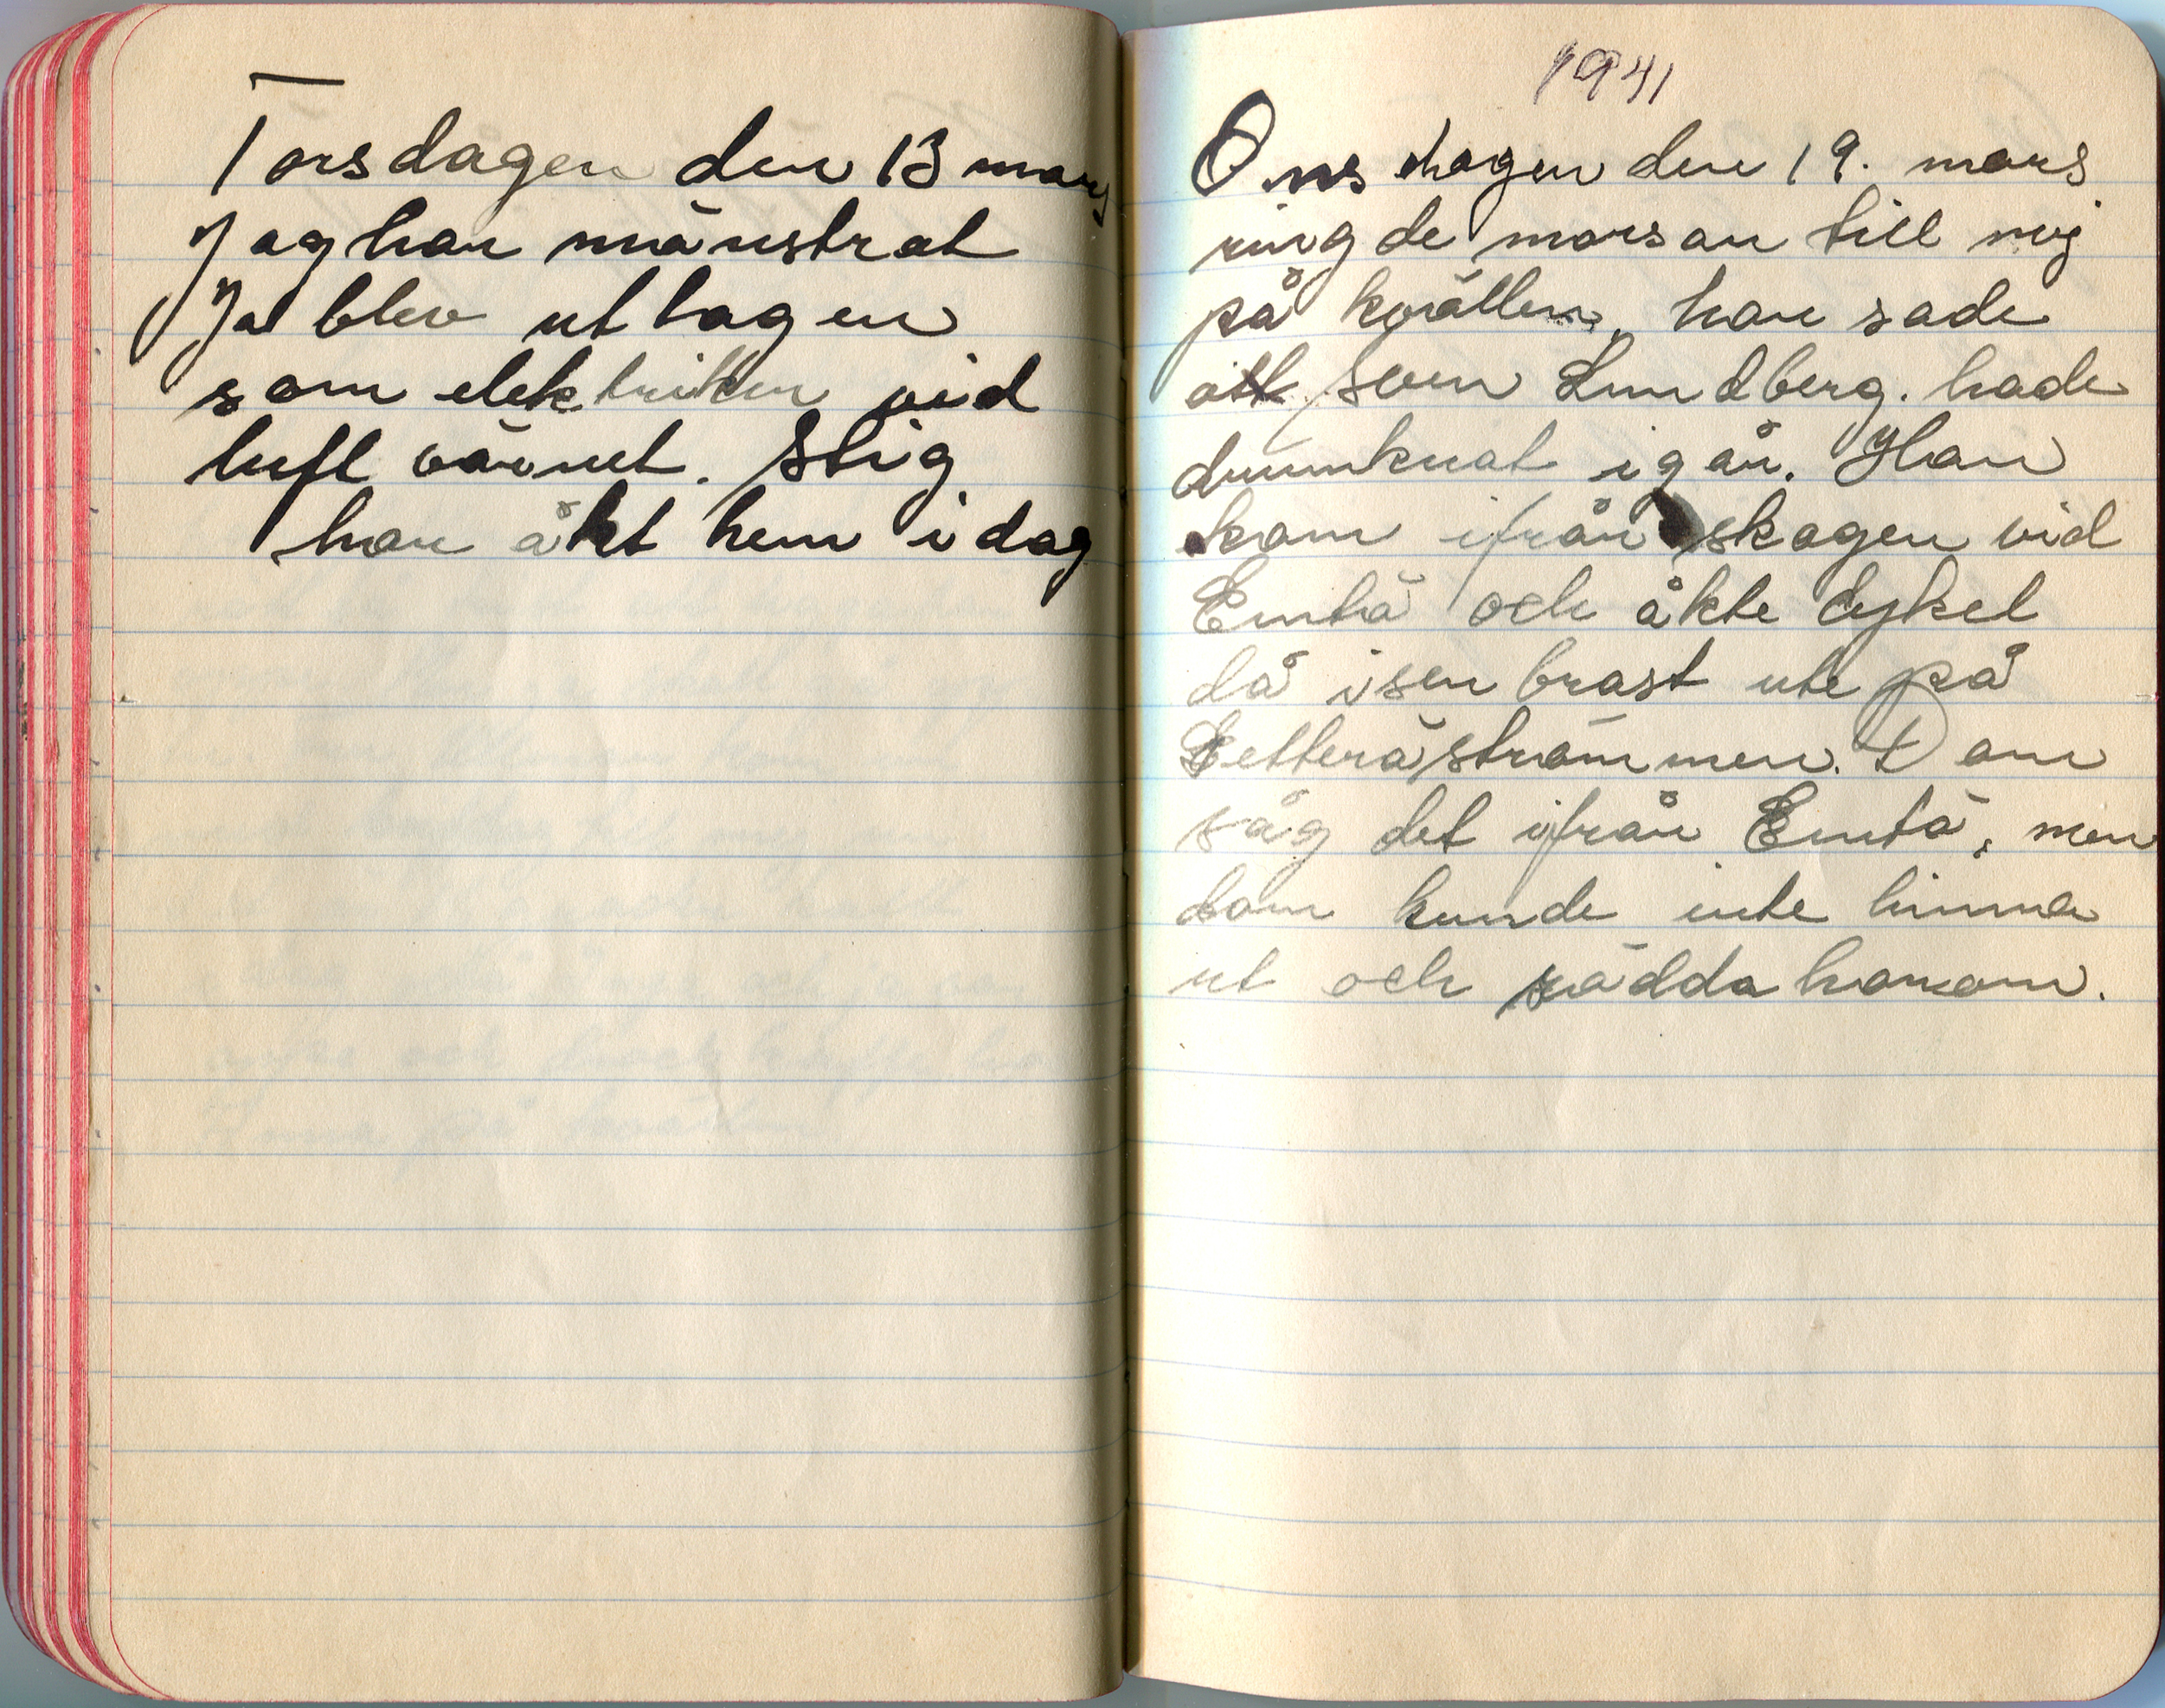 Torsdagen den 13 mars
Jag har mänstrat
Ja blev uttagen
som elektriker vid
luftvärnet. Stig
har åkt hem idag
1941
Onsdagen den 19. mars
ringde morsan till mig
på kvällen, hon sade
att Sven Lundberg. hade
drunknat igår. Han
kom ifrån skogen vid
Emtö och åkte cykel
då isen brast ute på
Letteröströmmen. Dom
såg det ifrån Emtö, men
dom kunde inte hinna
ut och rädda honom.